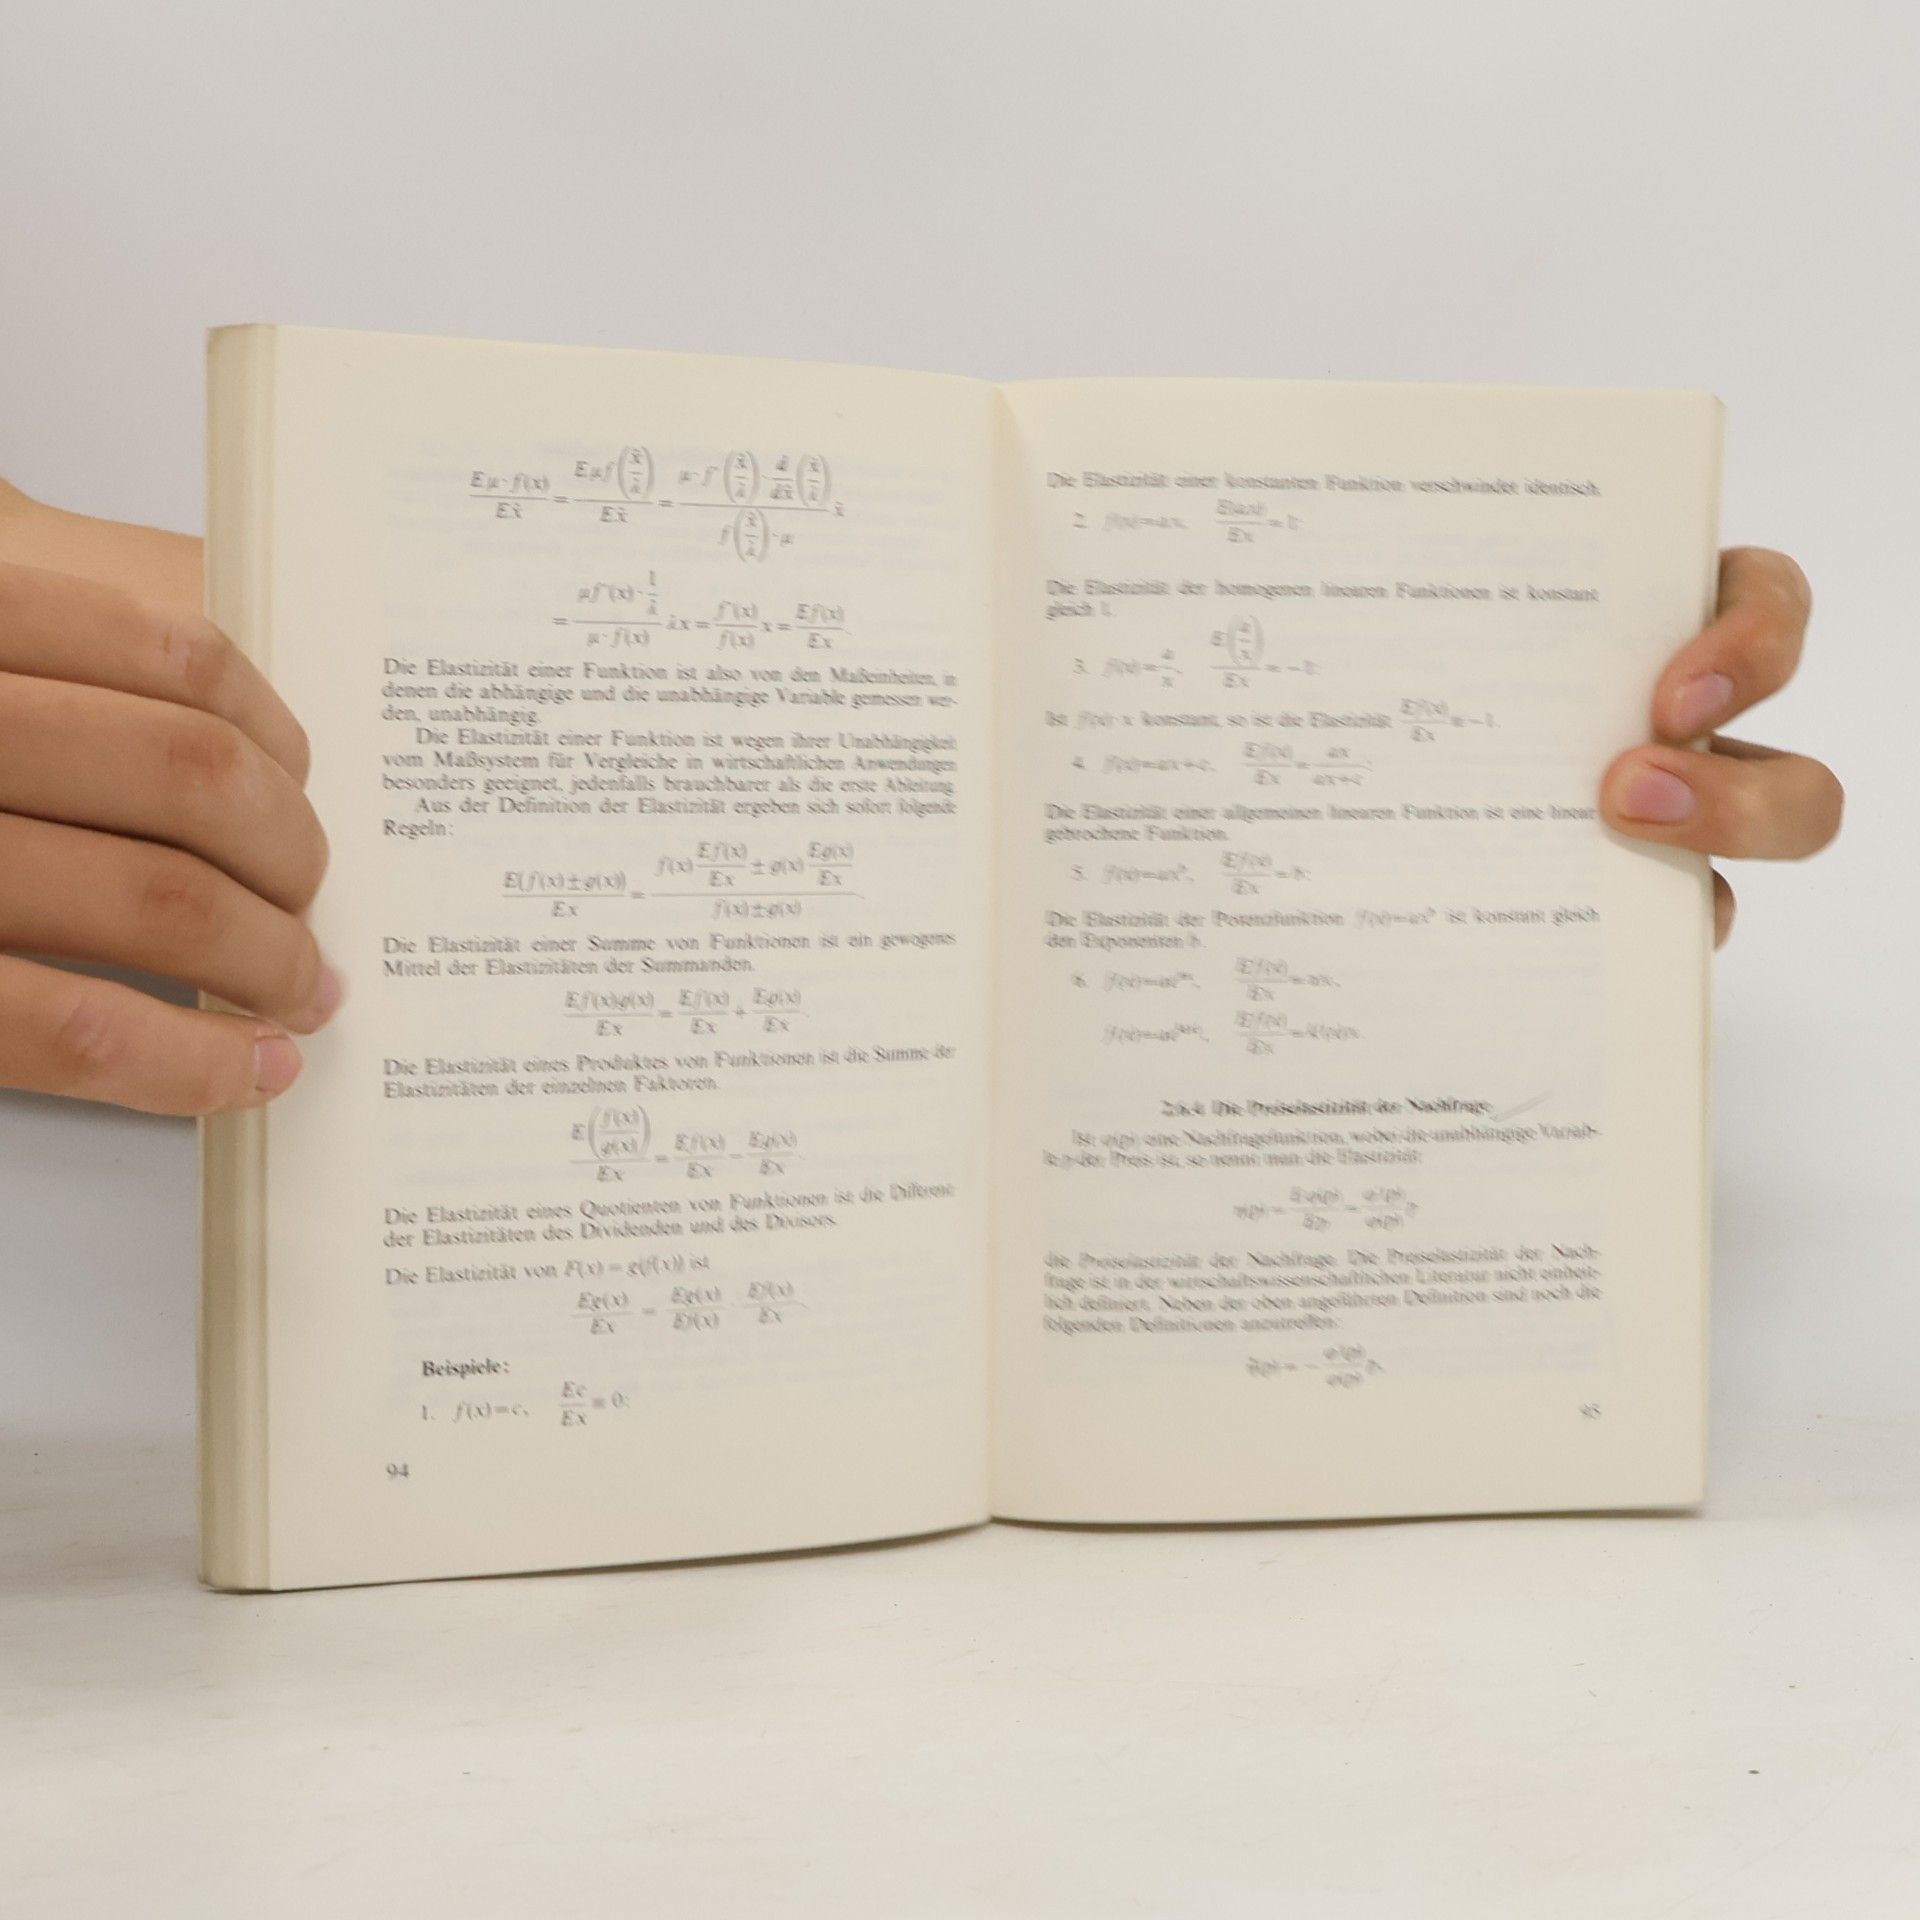 Eμ·f(x)/Ex̃ = Eμf(x̃/λ)/Ex̃ = μ·f′(x̃/λ)·d/dx̃(x̃/λ) / f(x̃/λ)·μ x̃
= μf′(x)·1/λ / μ·f(x) λx = f′(x)/f(x) x = Ef(x)/Ex.
Die Elastizität einer Funktion ist also von den Maßeinheiten, in
denen die abhängige und die unabhängige Variable gemessen wer-
den, unabhängig.
Die Elastizität einer Funktion ist wegen ihrer Unabhängigkeit
vom Maßsystem für Vergleiche in wirtschaftlichen Anwendungen
besonders geeignet, jedenfalls brauchbarer als die erste Ableitung.
Aus der Definition der Elastizität ergeben sich sofort folgende
Regeln:
E(f(x)±g(x))/Ex = f(x) Ef(x)/Ex ± g(x) Eg(x)/Ex / f(x)±g(x).
Die Elastizität einer Summe von Funktionen ist ein gewogenes
Mittel der Elastizitäten der Summanden.
Ef(x)g(x)/Ex = Ef(x)/Ex + Eg(x)/Ex.
Die Elastizität eines Produktes von Funktionen ist die Summe der
Elastizitäten der einzelnen Faktoren.
E(f(x)/g(x))/Ex = Ef(x)/Ex − Eg(x)/Ex.
Die Elastizität eines Quotienten von Funktionen ist die Differenz
der Elastizitäten des Dividenden und des Divisors.
Die Elastizität von F(x) = g(f(x)) ist
Eg(x)/Ex = Eg(x)/Ef(x) · Ef(x)/Ex.
Beispiele:
1. f(x)=c, Ec/Ex = 0;
94
Die Elastizität einer konstanten Funktion verschwindet identisch.
2. f(x)=ax, E(ax)/Ex = 1;
Die Elastizität der homogenen linearen Funktionen ist konstant
gleich 1.
3. f(x)=a/x, E(a/x)/Ex = −1;
Ist f(x)·x konstant, so ist die Elastizität Ef(x)/Ex = −1.
4. f(x)=ax+c, Ef(x)/Ex = ax/ax+c;
Die Elastizität einer allgemeinen linearen Funktion ist eine linear
gebrochene Funktion.
5. f(x)=axᵇ, Ef(x)/Ex = b;
Die Elastizität der Potenzfunktion f(x)=axᵇ ist konstant gleich
den Exponenten b.
6. Ef(x)/Ex
Ef(x)/Ex
2.6.4. Die Preiselastizität der Nachfrage
Ist eine Nachfragefunktion, wobei die unabhängige Variab-
le p der Preis ist, so nennt man die Elastizität:
die Preiselastizität der Nachfrage. Die Preiselastizität der Nach-
frage ist in der wirtschaftswissenschaftlichen Literatur nicht einheit-
lich definiert. Neben der oben angeführten Definition sind noch die
folgenden Definitionen anzutreffen:
95